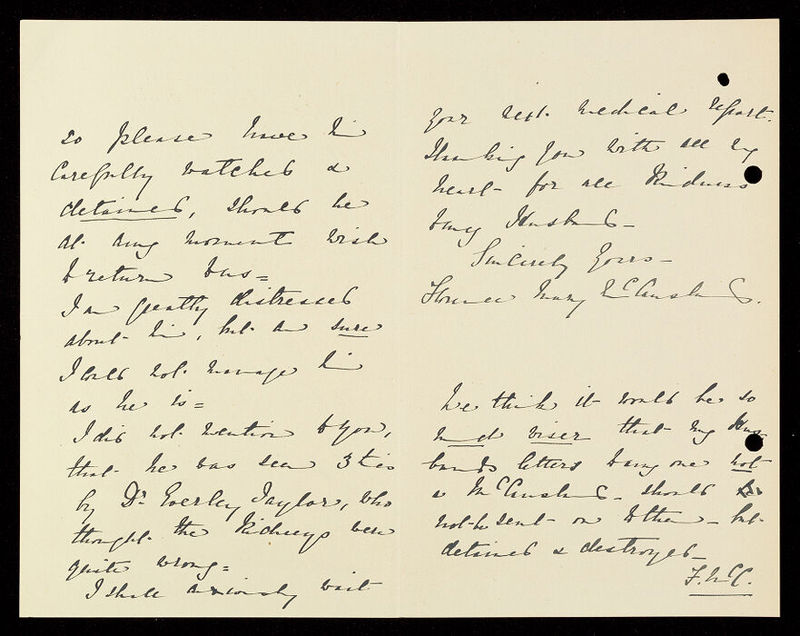 so please have him
carefully watched &
detained, should he
at any moment wish
to return home =
I am greatly distressed
about him, but am sure
I could not manage him
as he is =
I did not mention to you,
that he was seen 3 times
by Dr Everley Taylor, who
thought the Kidneys were
quite wrong =
I shall anxiously wait
your next medical report.
Thanking you with all my
heart for all Kindness
to my Husband -
Sincerely Yours -
Florence Mary McCausland.
We think it would be so
much wiser that my Hus-
bands letters to any one not
a McCausland - should
not be sent on to them - but
detained & destroyed -
F. McC.